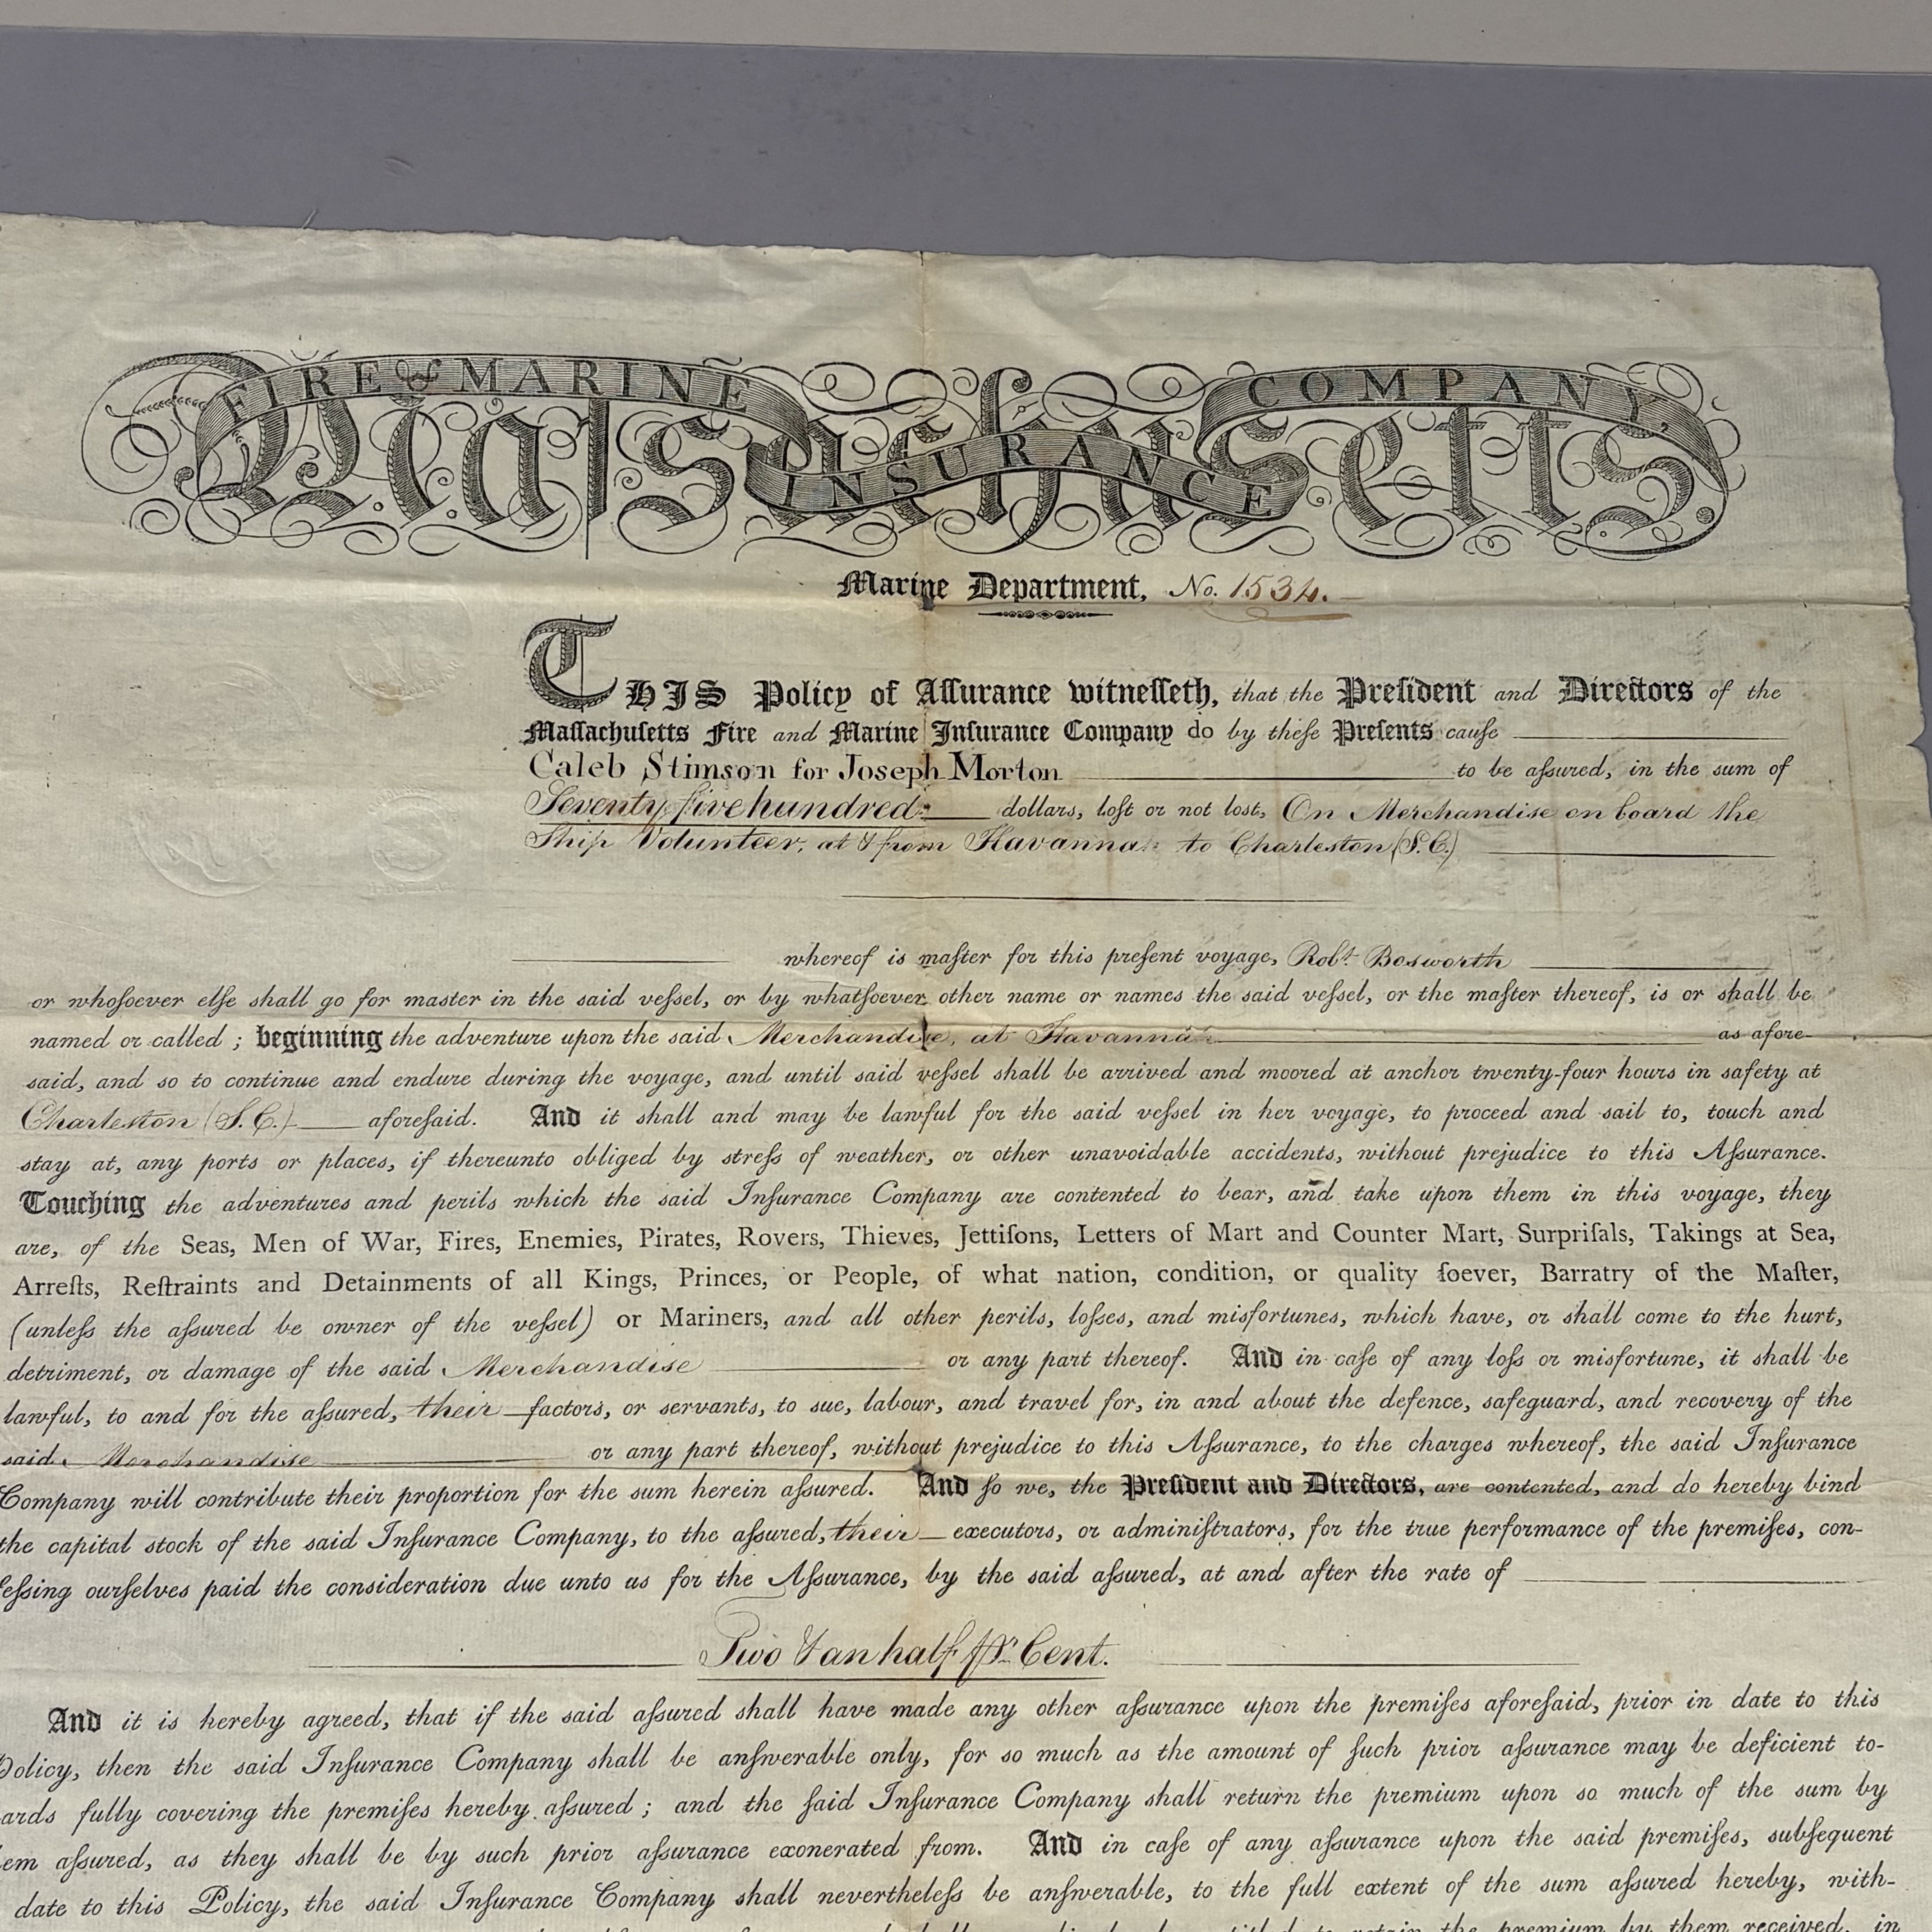 FIRE & MARINE INSURANCE COMPANY,
Massachusetts.
Marine Department, No. 1534.
THIS Policy of Aſſurance witneſſeth, that the Preſident and Directors of the
Maſſachuſetts Fire and Marine Inſurance Company do by theſe Preſents cauſe
Caleb Stimson for Joseph Morton to be aſsured, in the sum of
Seventy five hundred dollars, loſt or not lost, On Merchandise on board the
Ship Volunteer, at & from Havannah to Charleston (S.C.)
whereof is maſter for this preſent voyage, Robt. Bosworth
or whoſoever elſe shall go for master in the said veſsel, or by whatſoever other name or names the said veſsel, or the maſter thereof, is or shall be
named or called ; beginning the adventure upon the said Merchandise, at Havannah as afore-
said, and so to continue and endure during the voyage, and until said veſsel shall be arrived and moored at anchor twenty-four hours in safety at
Charleston (S.C.) aforeſaid. And it shall and may be lawful for the said veſsel in her voyage, to proceed and sail to, touch and
stay at, any ports or places, if thereunto obliged by streſs of weather, or other unavoidable accidents, without prejudice to this Aſsurance.
Touching the adventures and perils which the said Inſurance Company are contented to bear, and take upon them in this voyage, they
are, of the Seas, Men of War, Fires, Enemies, Pirates, Rovers, Thieves, Jettiſons, Letters of Mart and Counter Mart, Surpriſals, Takings at Sea,
Arreſts, Reſtraints and Detainments of all Kings, Princes, or People, of what nation, condition, or quality ſoever, Barratry of the Maſter,
(unleſs the aſsured be owner of the veſsel) or Mariners, and all other perils, loſses, and misfortunes, which have, or shall come to the hurt,
detriment, or damage of the said Merchandise or any part thereof. And in caſe of any loſs or misfortune, it shall be
lawful, to and for the aſsured, their factors, or servants, to sue, labour, and travel for, in and about the defence, safeguard, and recovery of the
said Merchandise or any part thereof, without prejudice to this Aſsurance, to the charges whereof, the said Inſurance
Company will contribute their proportion for the sum herein aſsured. And ſo we, the Preſident and Directors, are contented, and do hereby bind
the capital stock of the said Inſurance Company, to the aſsured, their executors, or adminiſtrators, for the true performance of the premiſes, con-
feſsing ourſelves paid the consideration due unto us for the Aſsurance, by the said aſsured, at and after the rate of
Two & an half pr. Cent.
And it is hereby agreed, that if the said aſsured shall have made any other aſsurance upon the premiſes aforeſaid, prior in date to this
Policy, then the said Inſurance Company shall be anſwerable only, for so much as the amount of ſuch prior aſsurance may be deficient to-
ards fully covering the premiſes hereby aſsured ; and the ſaid Inſurance Company shall return the premium upon so much of the sum by
em aſsured, as they shall be by such prior aſsurance exonerated from. And in caſe of any aſsurance upon the said premiſes, subſequent
date to this Policy, the said Inſurance Company shall nevertheleſs be anſwerable, to the full extent of the sum aſsured hereby, with-
to retain the premium by them received, in